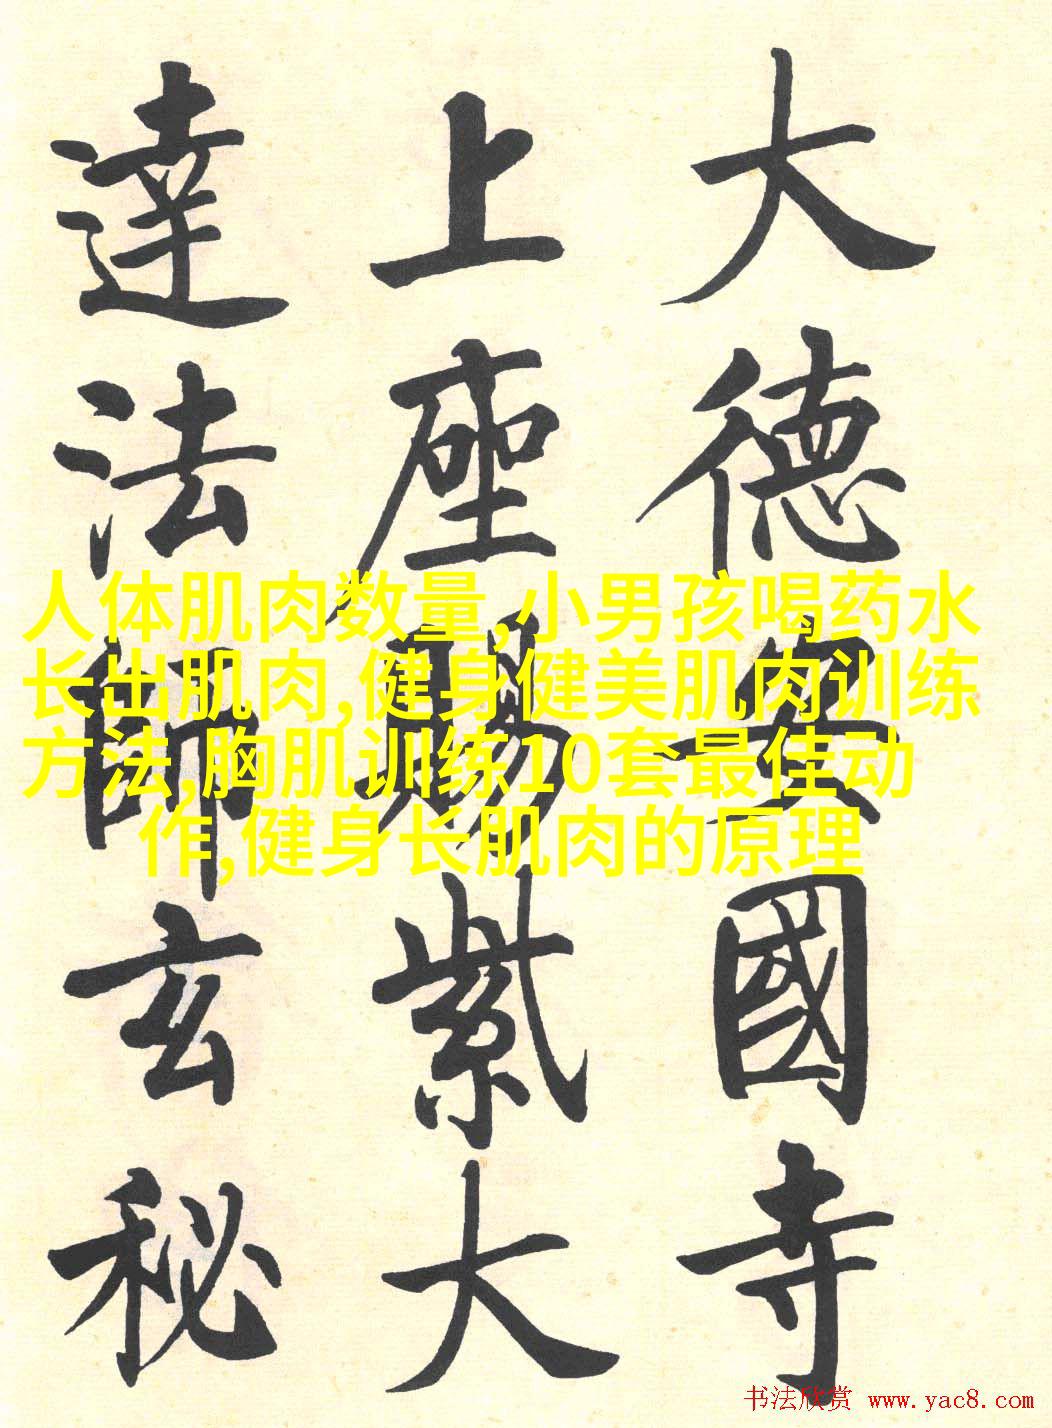 大德安國寺
上座賜紫大
達法師玄秘
人体肌肉数量,小男孩喝药水
长出肌肉,健身健美肌肉训练
方法,胸肌训练10套最佳动
作,健身长肌肉的原理
书法欣赏 www.yac8.com